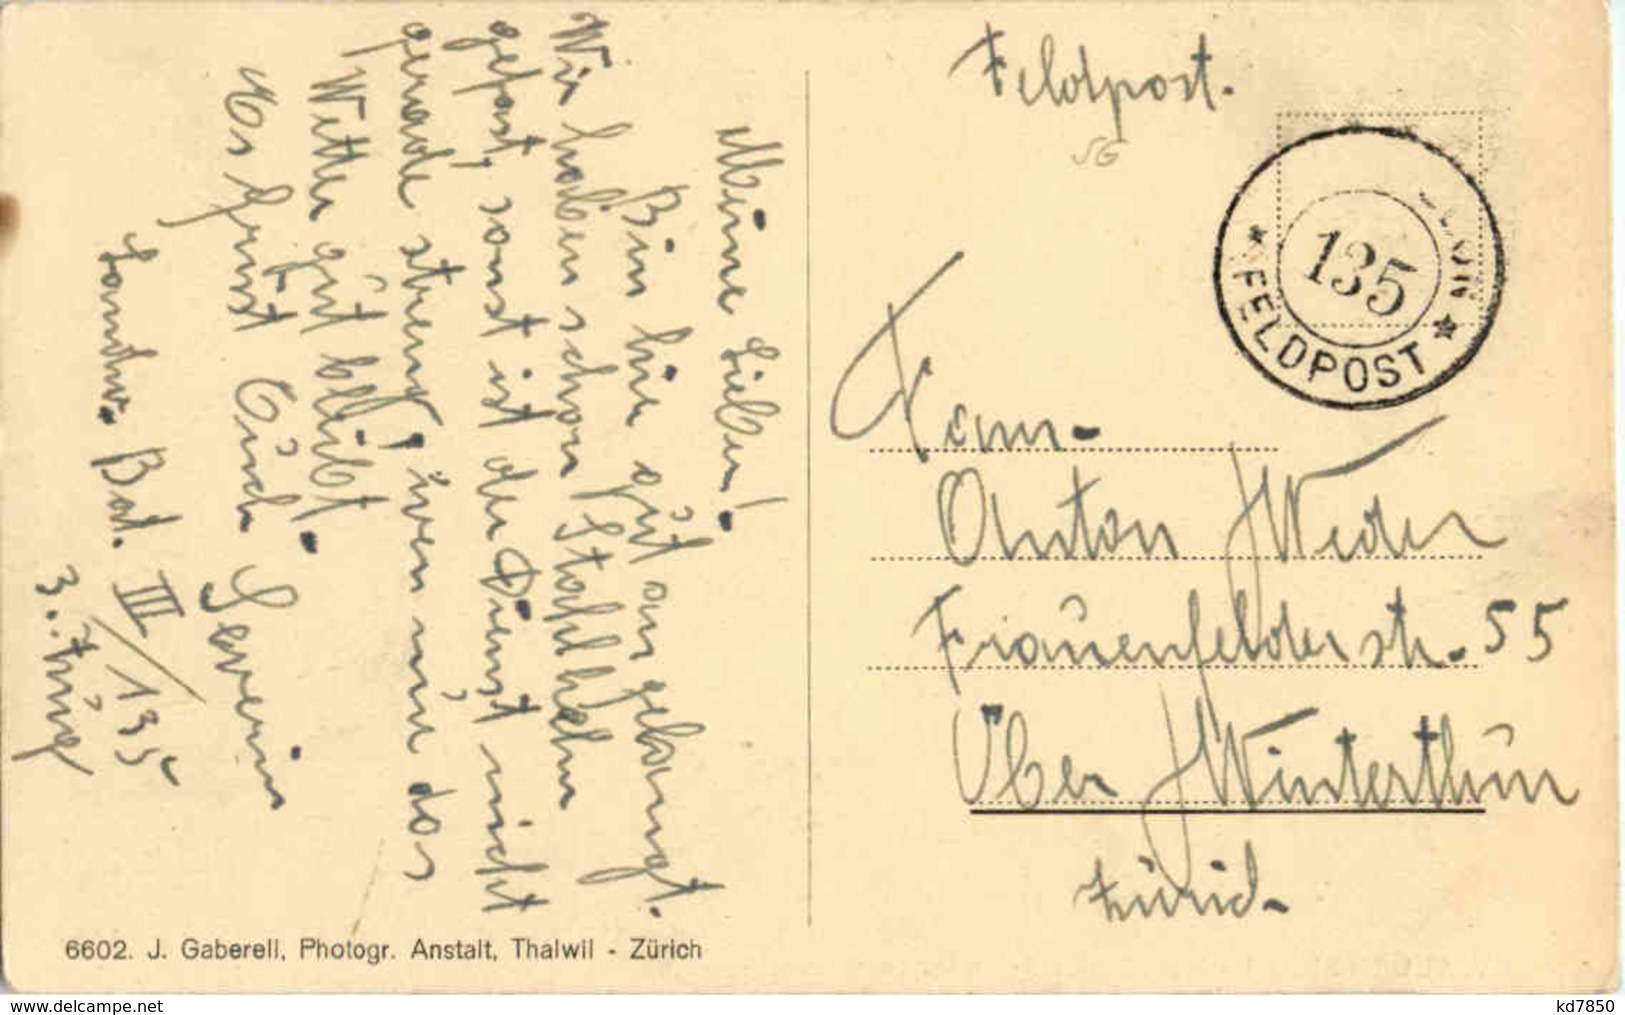 Meine Lieben!
Bin hier gut angelangt.
Wir haben schon Stahlhelm
gefasst, sonst ist der Dienst nicht
gerade streng, wen nur das
Wetter gut bleibt.
Es grüsst Euch Severin
Landw. Bat. III/135
3. Zug
Feldpost.
SG
★ FELDPOST ★
135
Fam.
Anton Weder
Frauenfelderstr. 55
Über Winterthur
Zürich.
6602. J. Gaberell, Photogr. Anstalt, Thalwil - Zürich
www.delcampe.net
kd7850